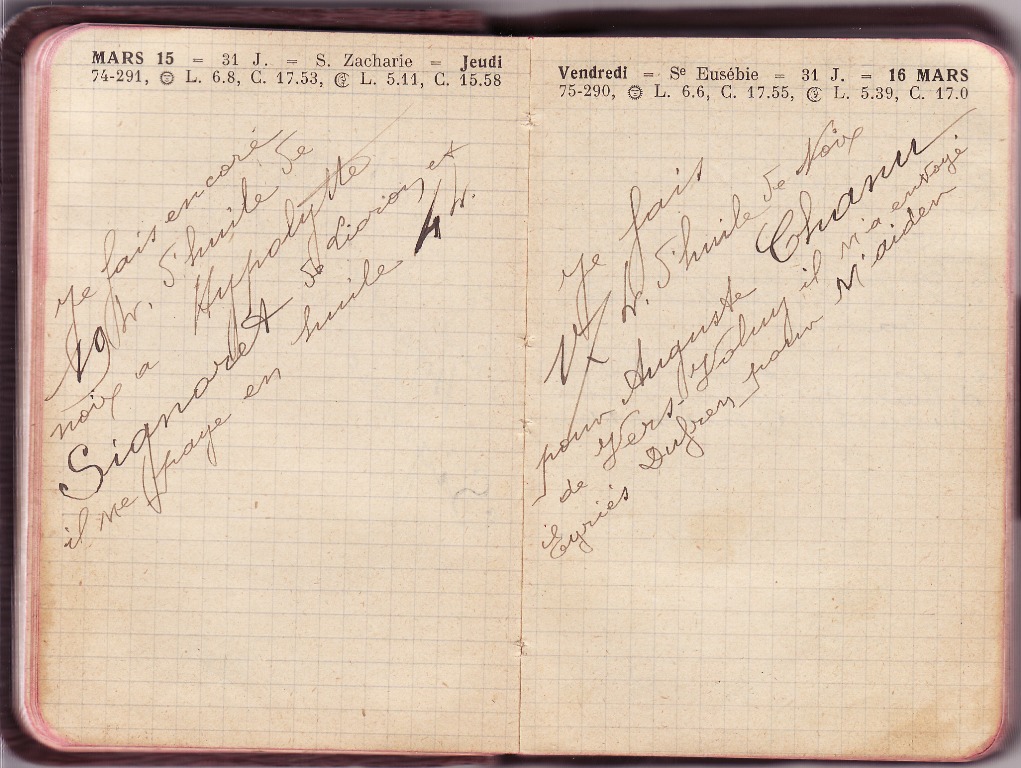 MARS 15 = 31 J. = S. Zacharie = Jeudi
74-291, L. 6.8, C. 17.53, L. 5.11, C. 15.58
Je fais encore
19 K. d'huile de
noix a Hyppolytte
Signoret de Livion et
il me paye en huile 4 K.
Vendredi = Se Eusébie = 31 J. = 16 MARS
75-290, L. 6.6, C. 17.55, L. 5.39, C. 17.0
Je fais
K. d'huile de Noix
pour Auguste Chanu
de Vers- il m'a envoyé
Eyriés Dufrey pour M'aider